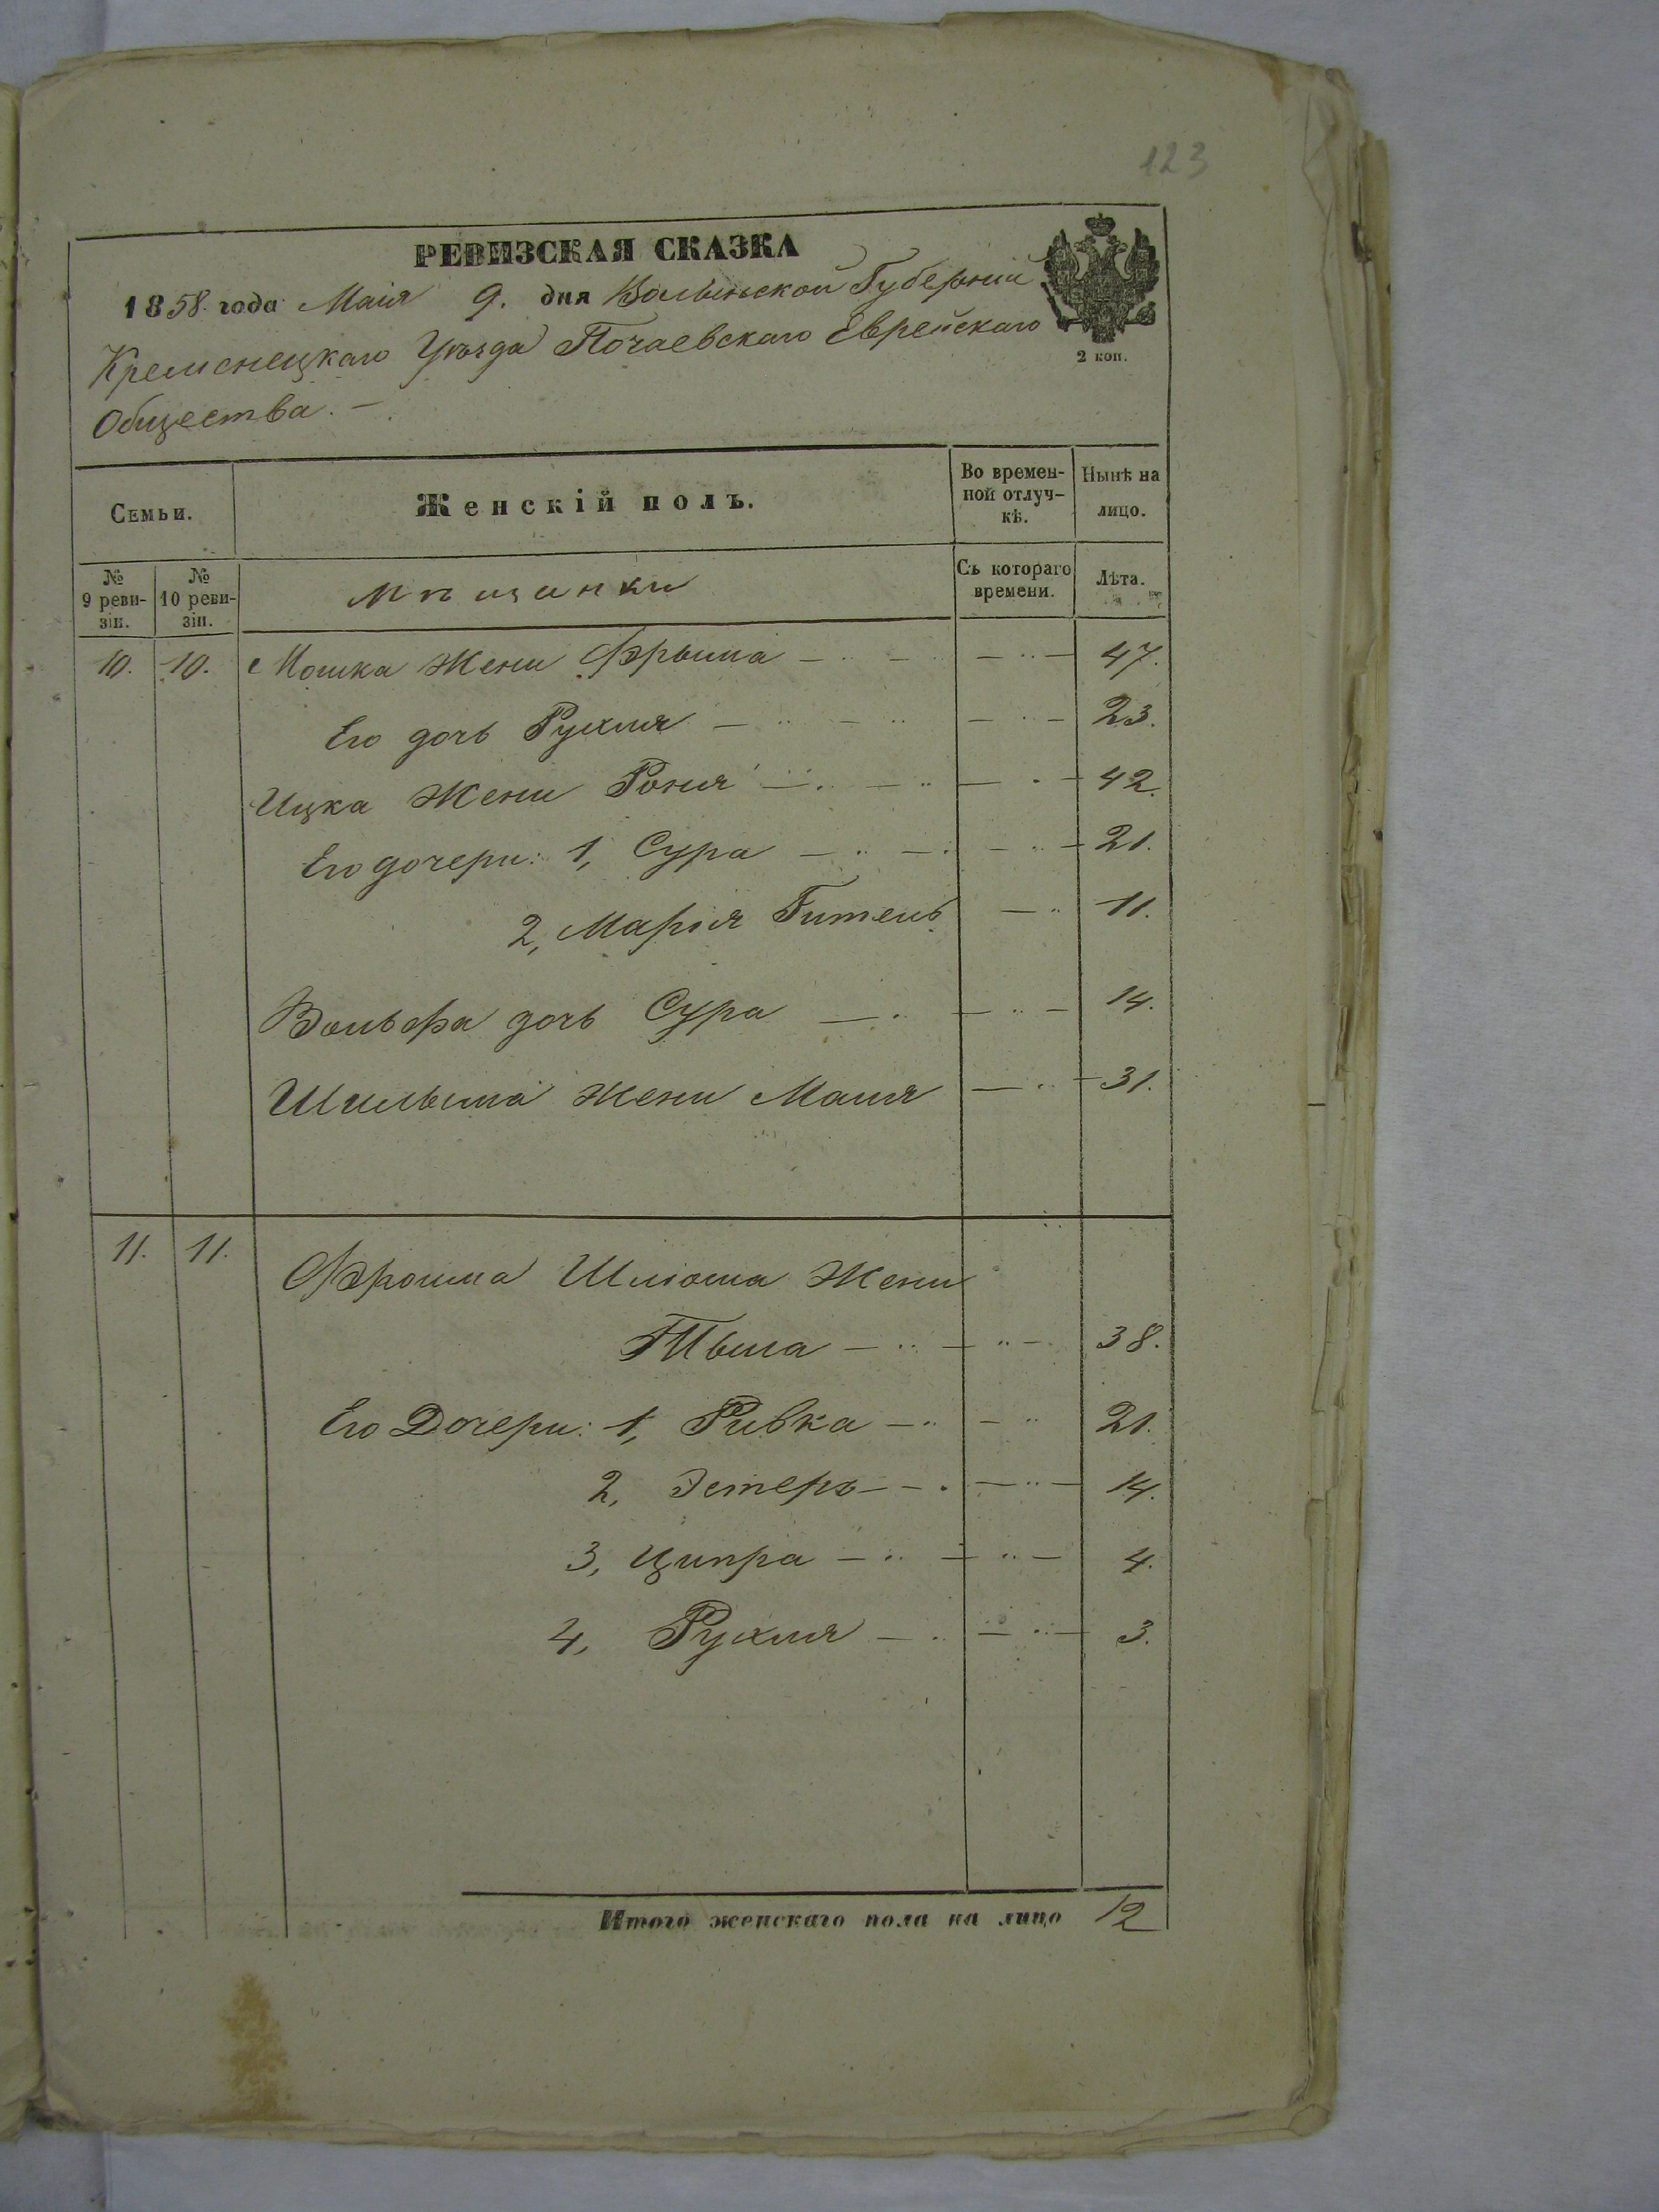 123
РЕВИЗСКАЯ СКАЗКА
1858. года Маія 9. дня Волынской Губерніи
Кременецкаго Уѣзда Почаевскаго Еврейскаго
Общества. —
2 коп.
Семьи. Женскій полъ. Во времен-ной отлуч-кѣ. Нынѣ на лицо.
№ 9 реви-зіи. № 10 реви-зіи. Мѣщанки Съ котораго времени. Лѣта.
10. 10. Мошка жени Фрыма 47.
Его дочь Рухля 23.
Ицка жени Роня 42.
Его дочери: 1, Сура 21.
2, Марія Гитель 11.
Вольфа дочь Сура 14.
Шильма жени Маля 31.
11. 11. Фроима Шлиома жени
38.
Его Дочери: 1, Ривка 21.
2, Эстеръ 14.
3, Ципра 4.
4, Рухля 3.
Итого женскаго пола на лицо 12